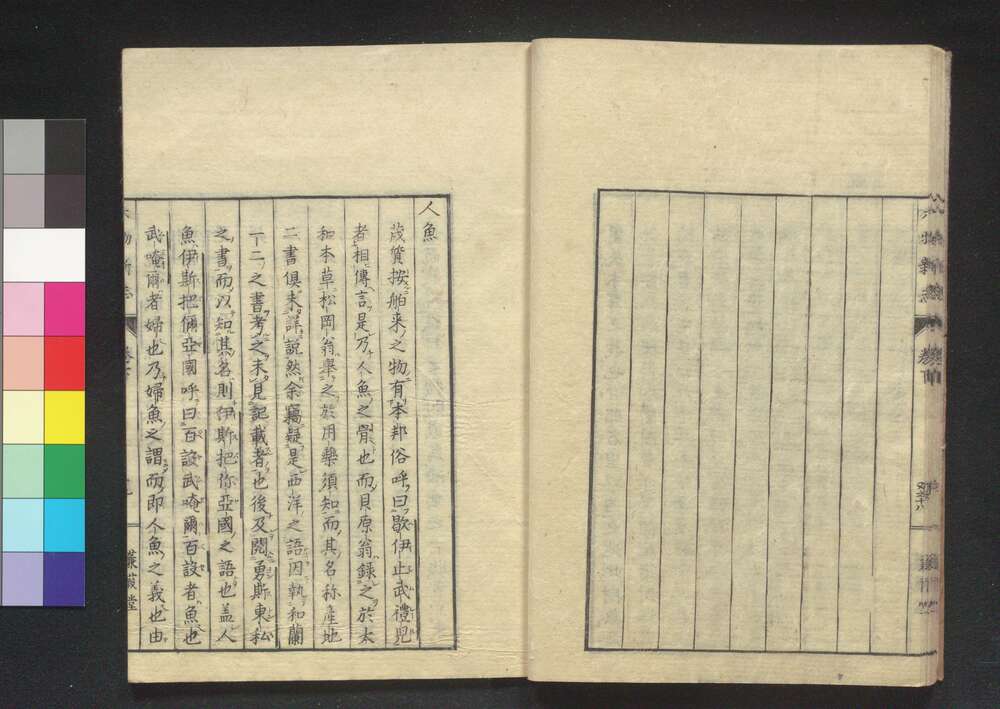 人魚
茂質按舶来之物有本邦俗呼曰歇伊止武禮児
者相傳言是乃人魚之骨也而貝原翁録之於大
和本草松岡翁舉之於用藥須知而其名称産地
二書俱未詳説然余竊疑是西洋之語因執和蘭
一二之書考之未見記載者也後及閲勇斯東私
之書而以知其名則伊斯把你亞國之語也盖人
魚伊斯把儞亞國呼曰百設武唵爾百設者魚也
武唵爾者婦也乃婦魚之謂而即人魚之義也由
蒹葭堂